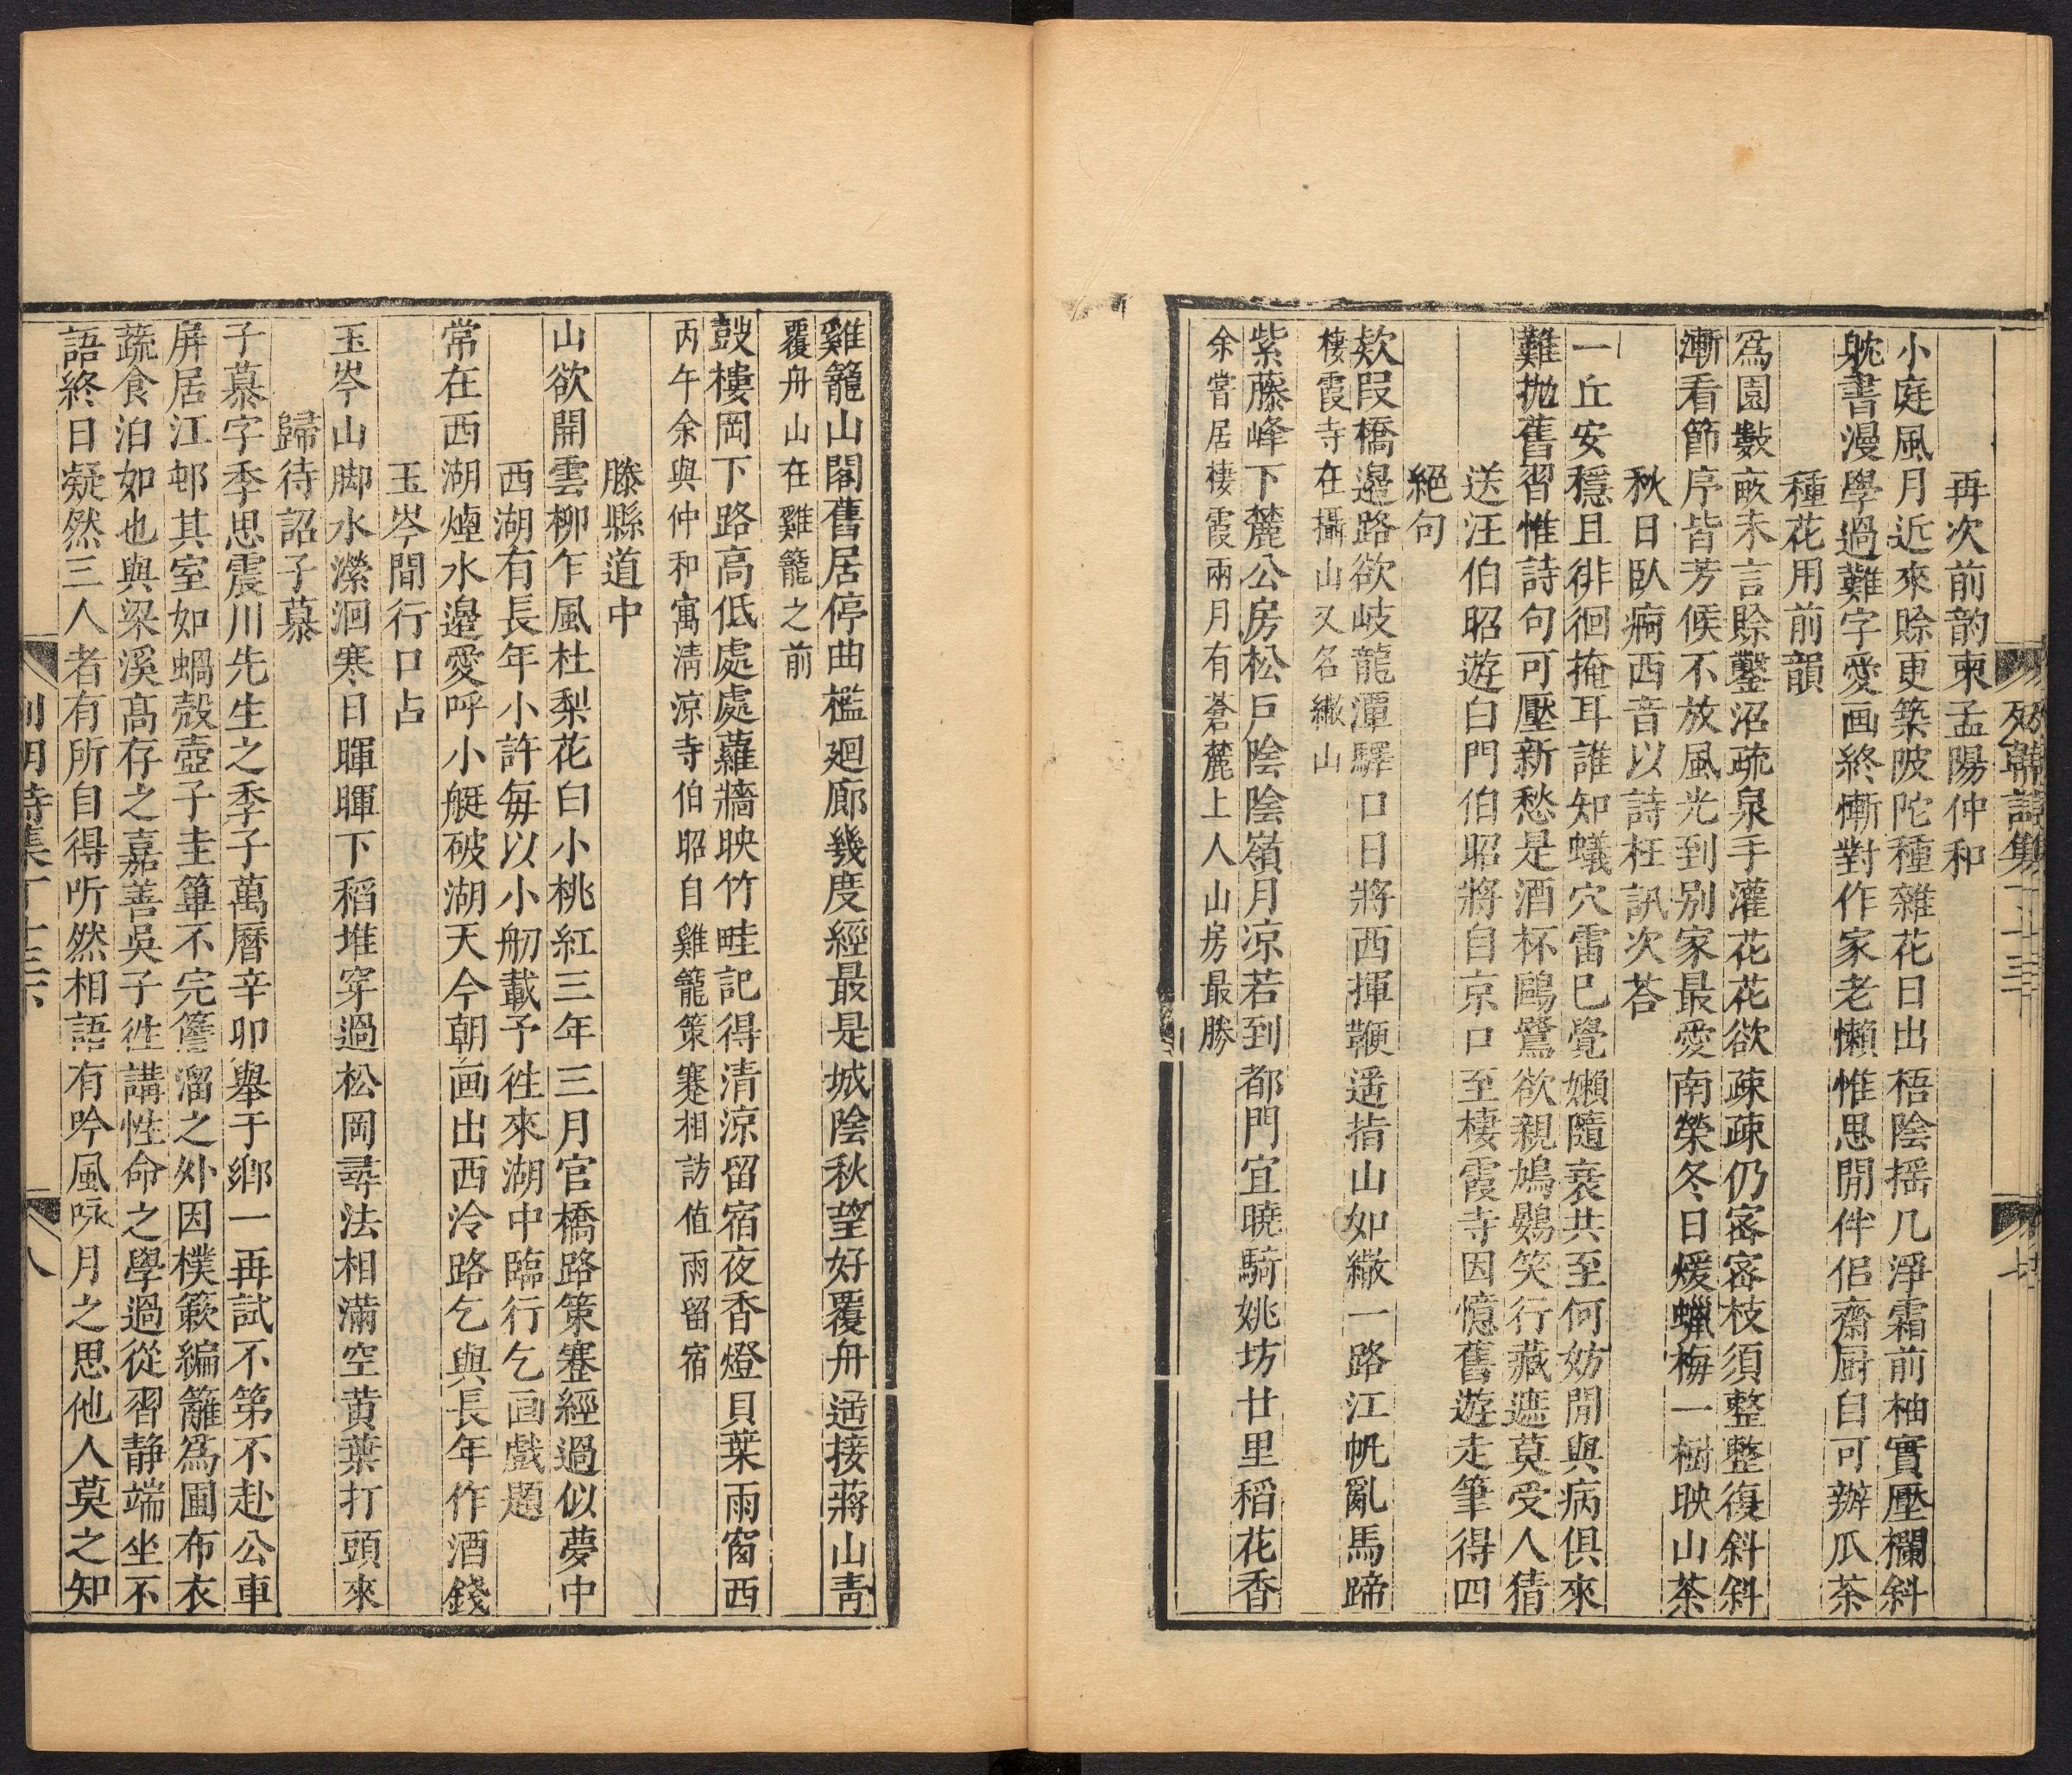 再次前韵柬孟陽仲和
小庭風月近來賒更築陂陀種雜花日出梧陰揺几淨霜前柚實壓欄斜
躭書漫學過難字愛画終慚對作家老懶惟思閒伴侣齋厨自可辦瓜茶
種花用前韻
爲園數畝未言賒鑿沼疏泉手灌花花欲疎疎仍宻宻枝須整整復斜斜
漸看節序皆芳候不放風光到别家最愛南榮冬日煖蠟梅一樹映山茶
秋日臥痾西音以詩枉訊次荅
一丘安穩且徘徊掩耳誰知蟻穴雷已覺嬾隨衰共至何妨閒與病俱來
難抛舊習惟詩句可壓新愁是酒杯鷗鷺欲親鳩鷃笑行藏遮莫受人猜
送汪伯昭遊白門伯昭將自京口至棲霞寺因憶舊遊走筆得四
絕句
欵叚橋邊路欲岐龍潭驛口日將西揮鞭遥指山如繖一路江帆亂馬蹄
棲霞寺在攝山又名繖山
紫藤峰下麓公房松戸陰陰嶺月凉若到都門宜曉騎姚坊廿里稻花香
余嘗居棲霞兩月有蒼麓上人山房最勝
七
雞籠山閣舊居停曲檻廻廊幾度經最是城陰秋望好覆舟遥接蔣山靑
覆舟山在雞籠之前
鼓樓岡下路高低處處蘿牆映竹畦記得清涼留宿夜香燈貝葉雨窗西
丙午余與仲和寓淸涼寺伯昭自雞籠策蹇相訪值雨留宿
滕縣道中
山欲開雲柳乍風杜梨花白小桃紅三年三月官橋路策蹇經過似夢中
西湖有長年小許每以小舠載予徃來湖中臨行乞画戲題
常在西湖煙水邉愛呼小艇破湖天今朝画出西泠路乞與長年作酒錢
玉岑間行口占
玉岑山脚水瀠洄寒日暉暉下稻堆穿過松岡尋法相滿空黄葉打頭來
歸待詔子慕
子慕字季思震川先生之季子萬曆辛卯舉于鄉一再試不第不赴公車
屏居江邨其室如蝸殼壺子圭篳不完簷溜之外因樸簌編籬爲圃布衣
蔬食泊如也與梁溪髙存之嘉善吳子徃講性命之學過從習静端坐不
語終日凝然三人者有所自得听然相語有吟風咏月之思他人莫之知
列朝詩集丁十三下
八